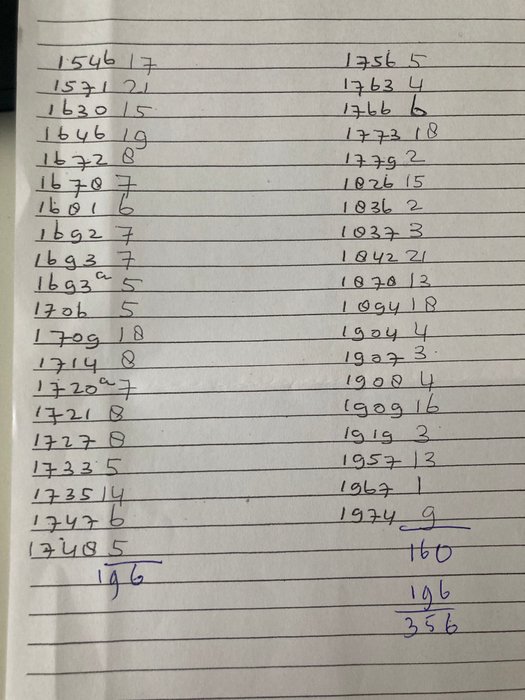 1546 17
1571 21
1630 15
1646 19
1672 8
1678 7
1681 6
1692 7
1693 7
1693a 5
1706 5
1709 18
1714 8
1720a 7
1721 8
1727 8
1733 5
1735 14
1747 6
1748 5
196
1756 5
1763 4
1766 6
1773 18
1779 2
1826 15
1836 2
1837 3
1842 21
1878 13
1894 18
1904 4
1907 3
1908 4
1909 16
1919 3
1957 13
1967 1
1974 9
160
196
356